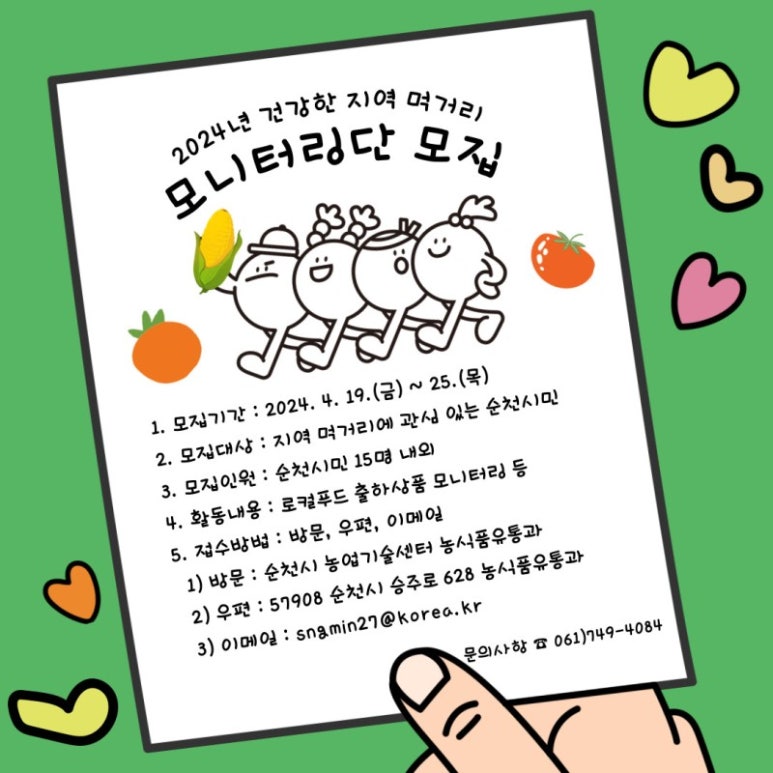 2024년 건강한 지역 먹거리
모니터링단 모집
1. 모집기간 : 2024. 4. 19.(금) ~ 25.(목)
2. 모집대상 : 지역 먹거리에 관심 있는 순천시민
3. 모집인원 : 순천시민 15명 내외
4. 활동내용 : 로컬푸드 출하상품 모니터링 등
5. 접수방법 : 방문, 우편, 이메일
1) 방문 : 순천시 농업기술센터 농식품유통과
2) 우편 : 57908 순천시 승주로 628 농식품유통과
3) 이메일 : sngmin27@korea.kr
문의사항 ☎ 061)749-4084